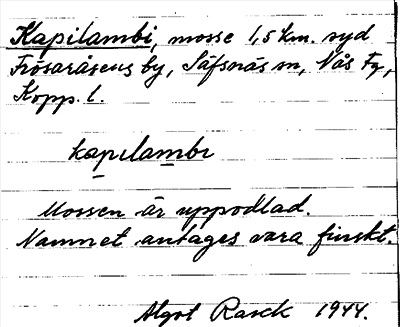 Kapilambi, mosse 1,5 km. syd
Frösaråsens by, Säfsnäs sn, Nås Fg,
Kopp. l.
kapılambı
Mossen är uppodlad.
Namnet antages vara finskt.
Algot Rasck 1944.